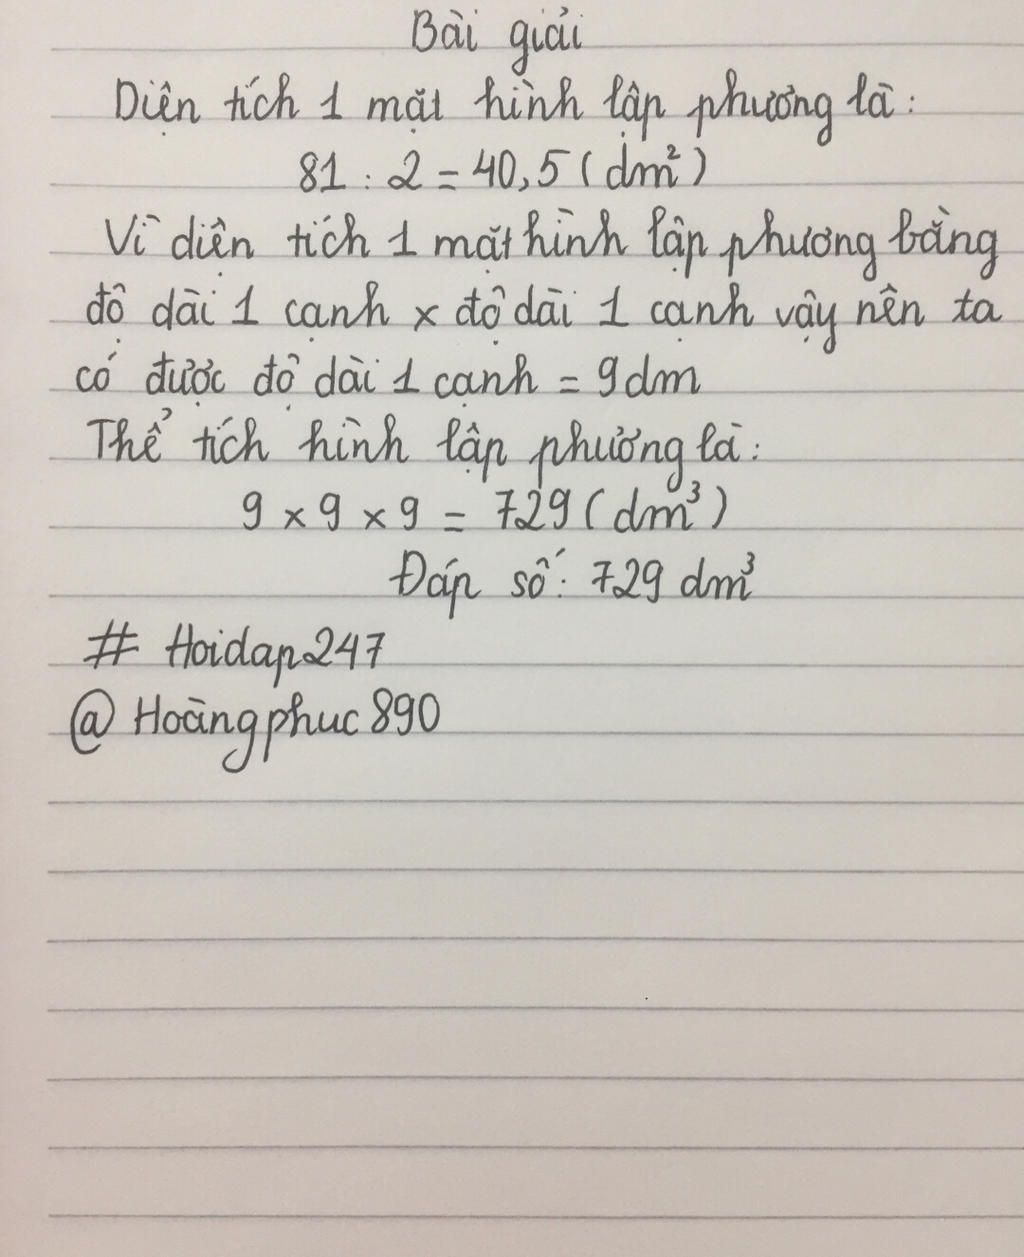 Bài giải
Diện tích 1 mặt hình lập phương là:
81 : 2 = 40,5 (dm²)
Vì diện tích 1 mặt hình lập phương bằng
độ dài 1 cạnh x độ dài 1 cạnh vậy nên ta
có được độ dài 1 cạnh = 9dm
Thể tích hình lập phương là:
9 x 9 x 9 = 729 (dm³)
Đáp số: 729 dm³
# Hoidap247
@ Hoàngphuc890